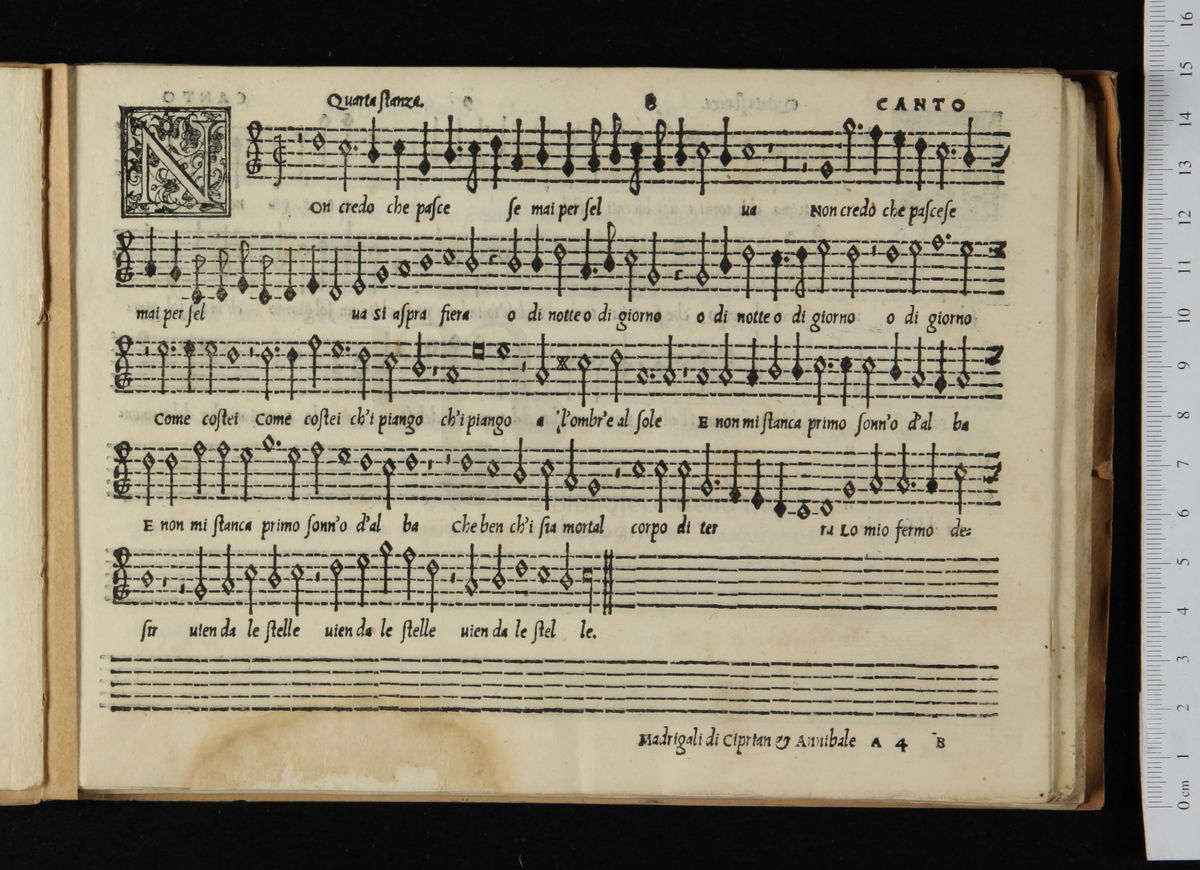 Quarta stanza. 8 CANTO
NOn credo che pasce se mai per sel ua Non credo che pascese
mai per sel ua Si aspra fiera o di notte o di giorno o di notte o di giorno o di giorno
Come costei Come costei ch'i piango ch'i piango a l'ombr'e al sole E non mi stanca primo sonn'o d'al ba
E non mi stanca primo sonn'o d'al ba Che ben ch'i sia mortal corpo di ter ra Lo mio fermo de=
sir uien da le stelle uien da le stelle uien da le stel le.
Madrigali di Ciprian & Annibale A 4 B
0 cm 1 2 3 4 5 6 7 8 9 10 11 12 13 14 15 16